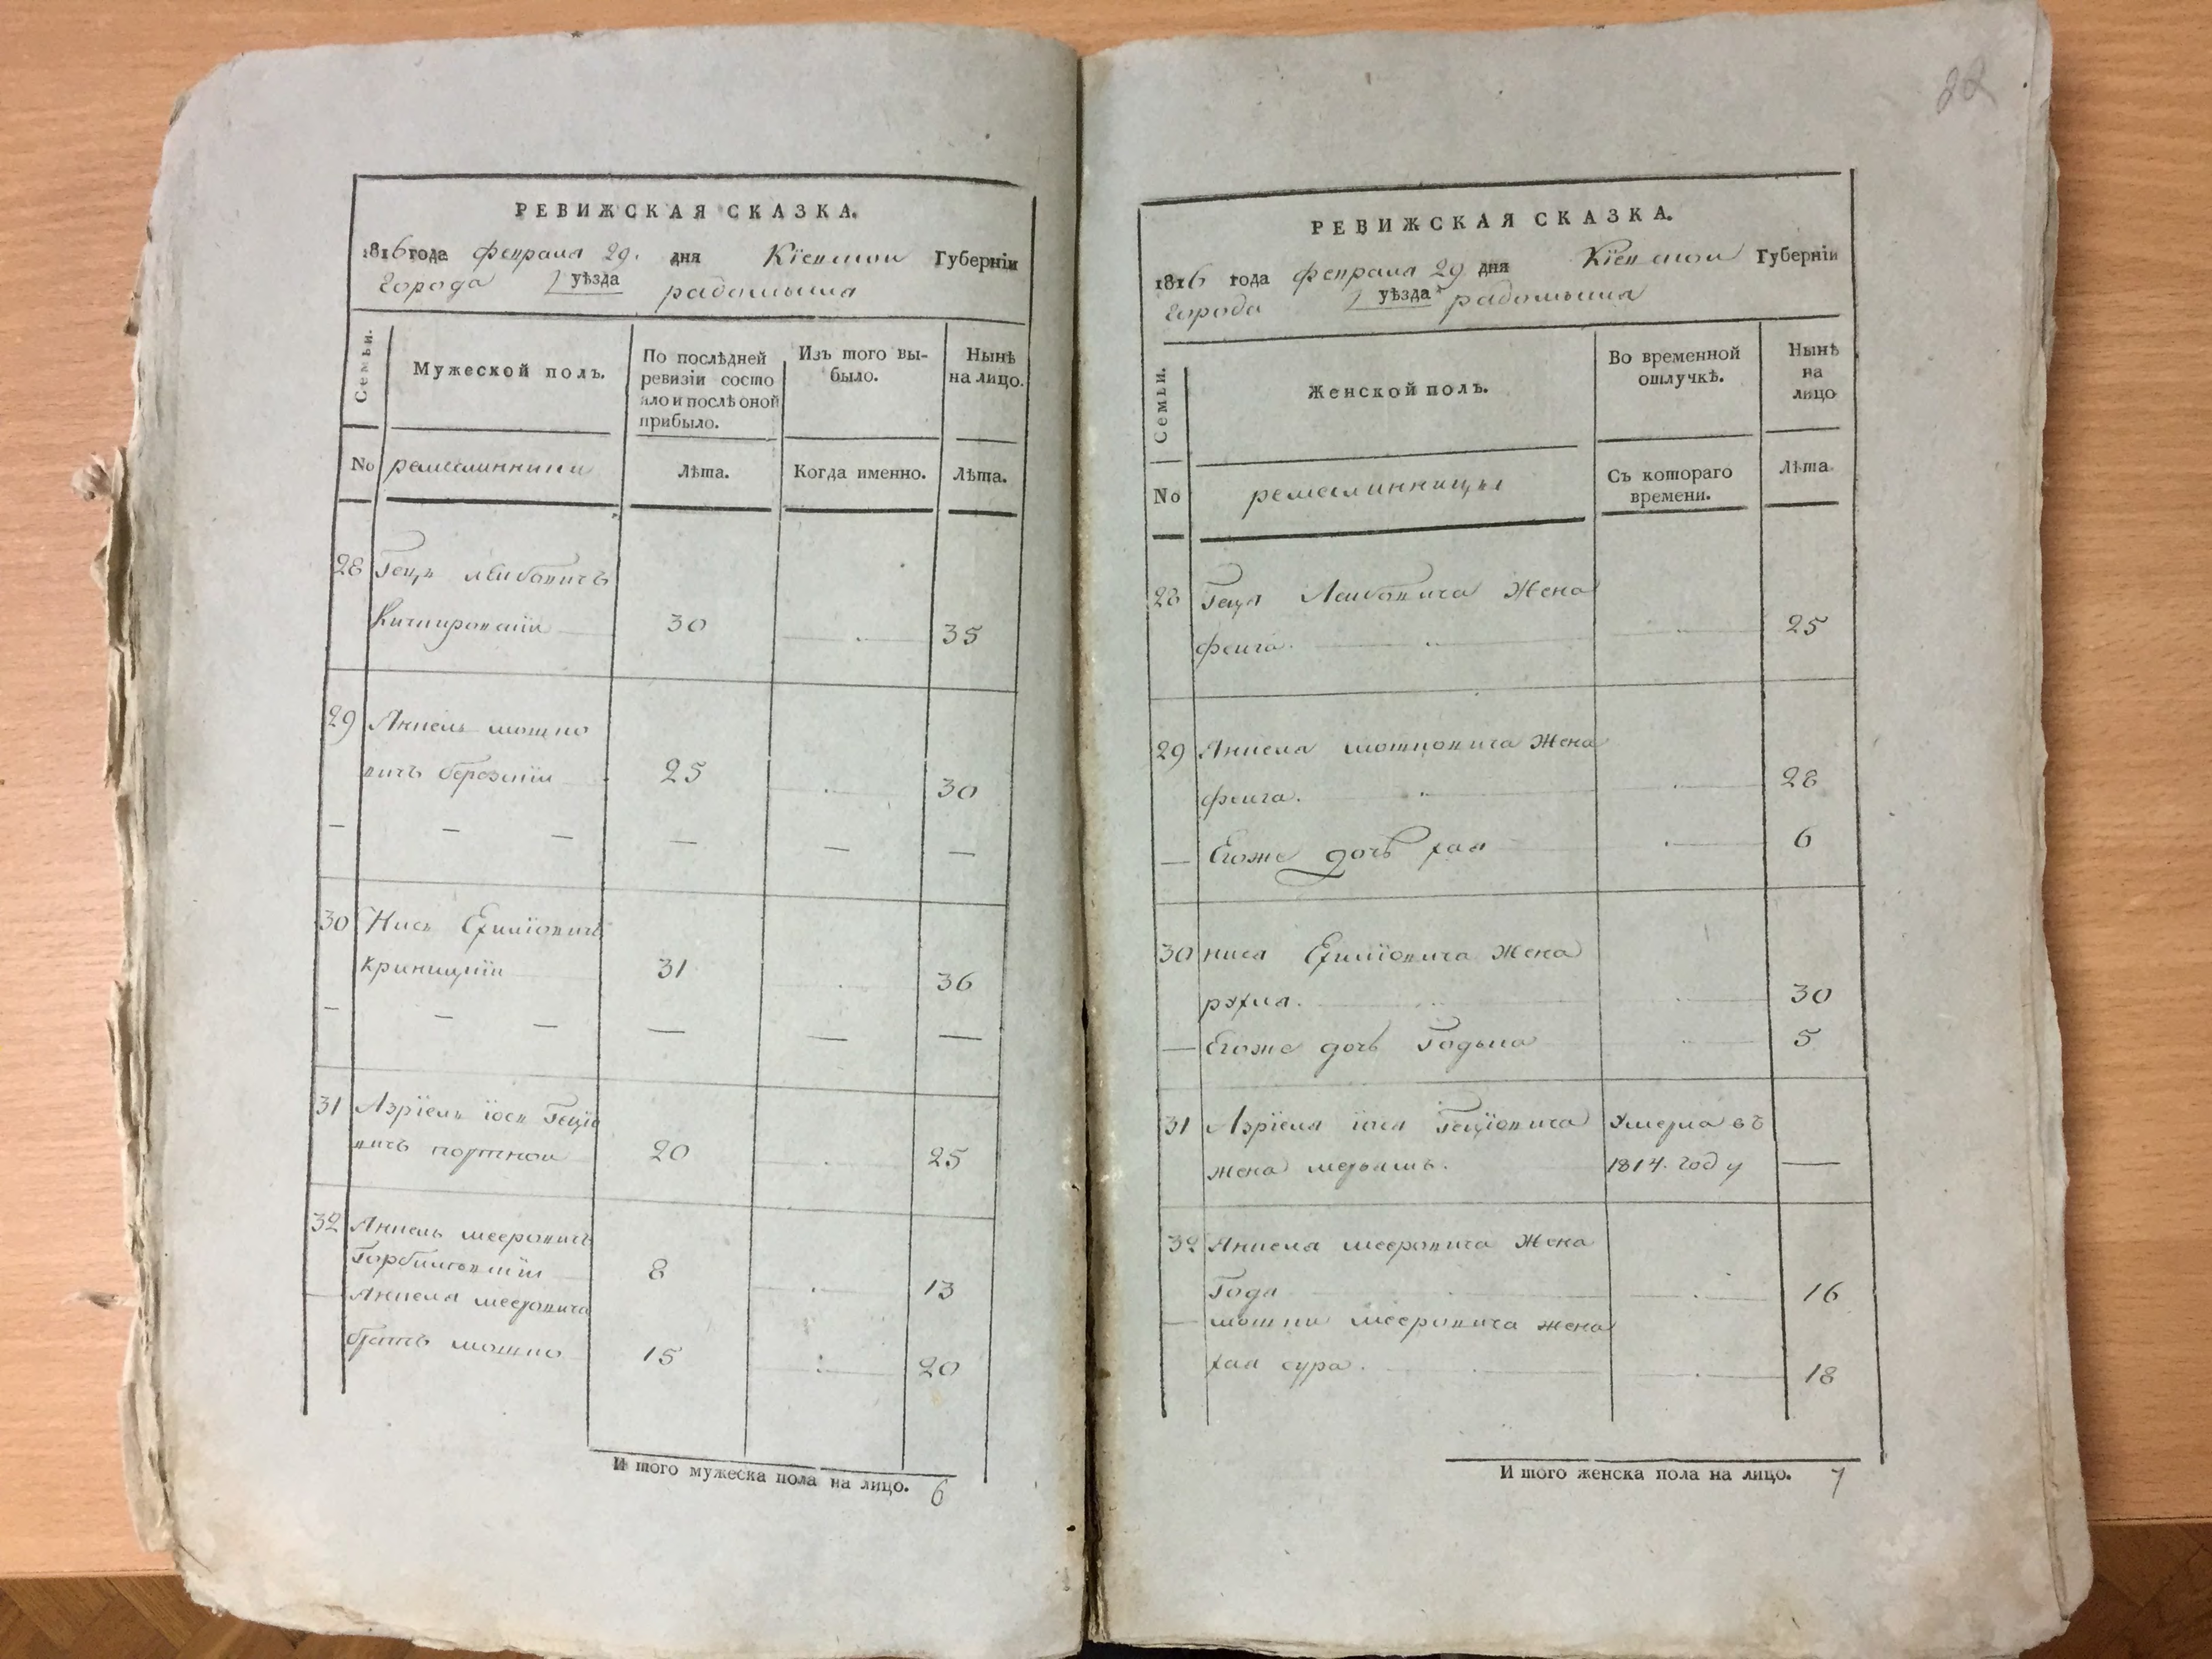 22
РЕВИЖСКАЯ СКАЗКА.
1816 года февраля 29. дня Кіевской Губерніи
города уѣзда радомысля
Семьи.
Мужеской полъ.
По послѣдней ревизіи состояло и послѣ оной прибыло.
Изъ того выбыло.
Нынѣ на лицо.
No ремеслинники
Лѣта.
Когда именно.
Лѣта.
28 Гецъ лейбовичъ
30 35
29 Анчель мошко
вичъ 25 30
— — — — — —
30 Нисъ Ехилїовичъ
криницкїй 31 36
— — — — — —
31 Азрїель їосъ Гецїо
вичъ портной 20 25
32 Анчель мееровичъ
8 13
— Анчеля мееровича
братъ мошко 15 20
И того мужеска пола на лицо. 6
РЕВИЖСКАЯ СКАЗКА.
1816 года февраля 29 дня Кіевской Губерніи
города уѣзда радомысля
Семьи.
Женской полъ.
Во временной отлучкѣ.
Нынѣ на лицо
No ремеслинницы
Съ котораго времени.
Лѣта
28 Геця Лейбовича Жена
фейга. 25
29 Анчеля мошковича Жена
фейга. 28
— Егоже дочь хая 6
30 нися Ехилїовича Жена
рухля. 30
— Егоже дочь Годыла 5
31 Азрїеля їося Гецїовича Умерла въ
жена 1814. году —
32 Анчеля мееровича Жена
Года 16
— мошки мееровича жена
хая сура. 18
И того женска пола на лицо. 7